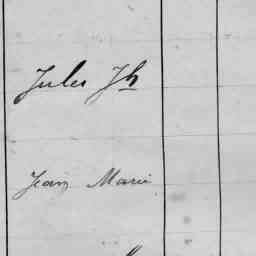 Jules Jh
Jean Marie